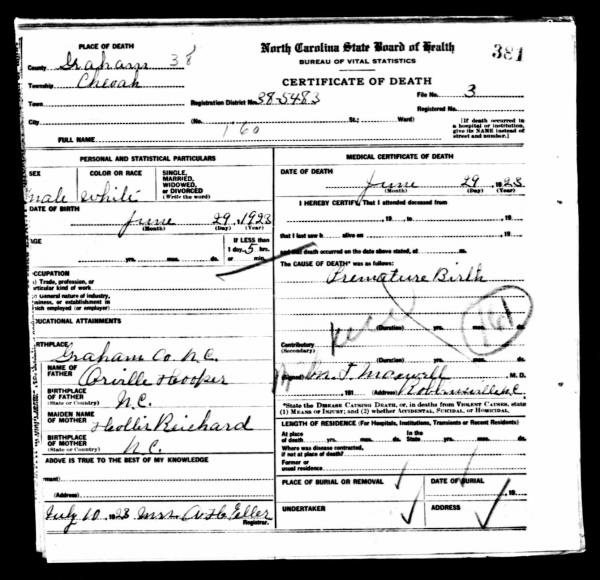 PLACE OF DEATH
County Graham 38
Township Cheoah
Town
City
North Carolina State Board of Health
BUREAU OF VITAL STATISTICS
CERTIFICATE OF DEATH
381
Registration District No. 38-5483
File No. 3
Registered No.
(No. St.; Ward)
[If death occurred in a hospital or institution, give its NAME instead of street and number.]
160
FULL NAME
PERSONAL AND STATISTICAL PARTICULARS
SEX
male
COLOR OR RACE
white
SINGLE,
MARRIED,
WIDOWED,
or DIVORCED
(Write the word)
DATE OF BIRTH
June 29, 1923
(Month) (Day) (Year)
AGE
yrs. mos. ds.
If LESS than
1 day, 5 hrs.
or min.
OCCUPATION
Trade, profession, or
particular kind of work
General nature of industry,
business, or establishment in
which employed (or employer)
EDUCATIONAL ATTAINMENTS
BIRTHPLACE
Graham Co. N.C.
NAME OF
FATHER
Orville Hooper
BIRTHPLACE
OF FATHER
(State or Country)
N.C.
MAIDEN NAME
OF MOTHER
BIRTHPLACE
OF MOTHER
(State or Country)
N.C.
ABOVE IS TRUE TO THE BEST OF MY KNOWLEDGE
(Address)
July 10 1923 Mrs.
Registrar.
MEDICAL CERTIFICATE OF DEATH
DATE OF DEATH
June 29 1923
(Month) (Day) (Year)
I HEREBY CERTIFY, That I attended deceased from
, 19 , to , 19
that I last saw h alive on , 19
and that death occurred on the date above stated, at m.
The CAUSE OF DEATH* was as follows:
Premature Birth
161
(Duration) yrs. mos. ds.
Contributory
(Secondary)
(Duration) yrs. mos. ds.
Maxwell M. D.
, 191 (Address) N.C.
*State the DISEASE CAUSING DEATH, or, in deaths from VIOLENT CAUSES, state
(1) MEANS OF INJURY; and (2) whether ACCIDENTAL, SUICIDAL, or HOMICIDAL.
LENGTH OF RESIDENCE (For Hospitals, Institutions, Transients or Recent Residents)
At place of death yrs. mos. ds. In the State yrs. mos. ds.
Where was disease contracted,
if not at place of death?
Former or
usual residence
PLACE OF BURIAL OR REMOVAL
DATE OF BURIAL
, 19
UNDERTAKER
ADDRESS